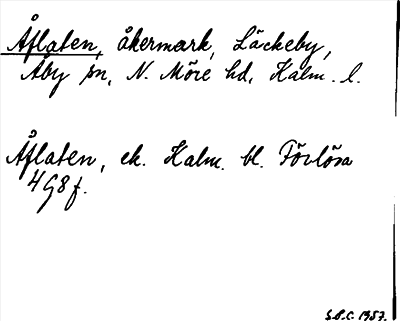 Åflaten, åkermark, Läckeby,
Åby sn, N. Möre hd, Kalm. l.
Åflaten, ek. Kalm. bl. Förlösa
4G8f.
S.B.C. 1957.